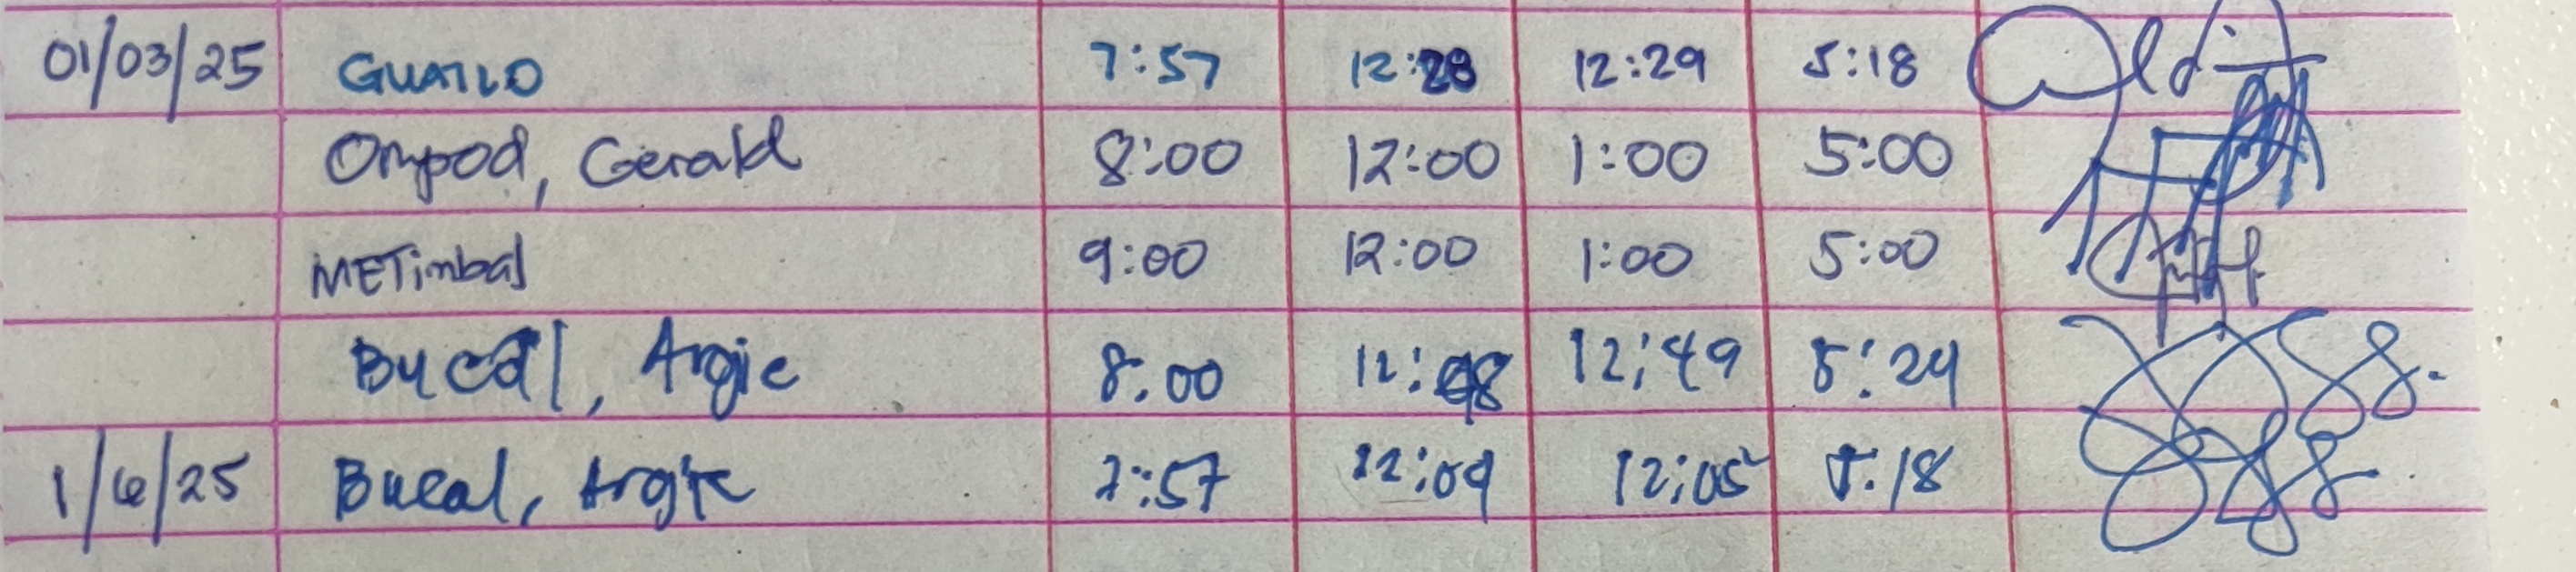 01/03/25 GUATLO 7:57 12:28 12:29 5:18
Ompod, Gerald 8:00 12:00 1:00 5:00
METimbal 9:00 12:00 1:00 5:00
Bucal, Argie 8:00 12:49 5:24
1/6/25 Bucal, Argie 7:57 12:05 5:18